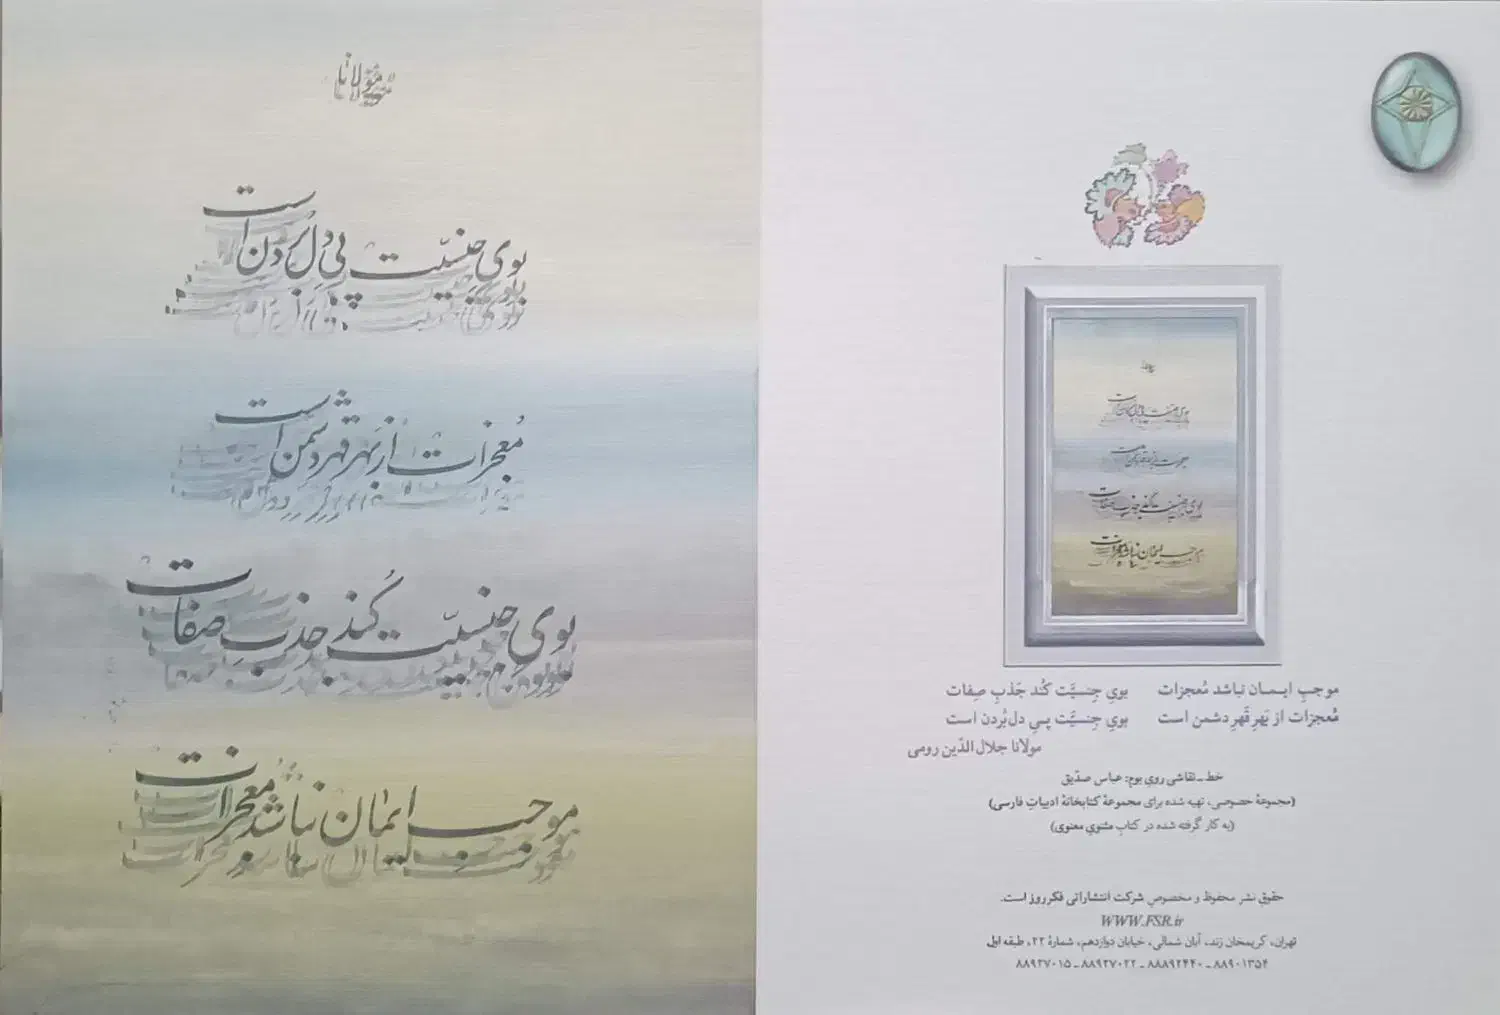 مولانا
بویِ جنسیّت پیِ دل بُردن است
مُعجزات از بَهرِ قهرِ دشمن است
بویِ جنسیّت کُند جذبِ صفات
موجبِ ایمان نباشد مُعجزات
موجبِ ایـمـان نباشد مُعجزات بویِ جِنسیَّت کُند جَذبِ صِفات
مُعجزات از بَهرِ قَهرِ دشمن است بویِ جِنسیَّت پیِ دل‌بُردن است
مولانا جلال الدّین رومی
خط ـ نقاشی رویِ بوم: عباس صدّیق
(مجموعهٔ خصوصی، تهیه شده برای مجموعهٔ کتابخانهٔ ادبیاتِ فارسی)
(به کار گرفته شده در کتابِ مثنویِ معنوی)
حقوقِ نشر محفوظ و مخصوصِ شرکت انتشاراتی فکرروز است.
WWW.FSR.ir
تهران، کریمخان زند، آبان شمالی، خیابان دوازدهم، شمارهٔ ۲۲، طبقه اول
۸۸۹۰۱۳۵۴ ـ ۸۸۸۹۲۴۴۰ ـ ۸۸۹۲۷۰۲۲ ـ ۸۸۹۲۷۰۱۵